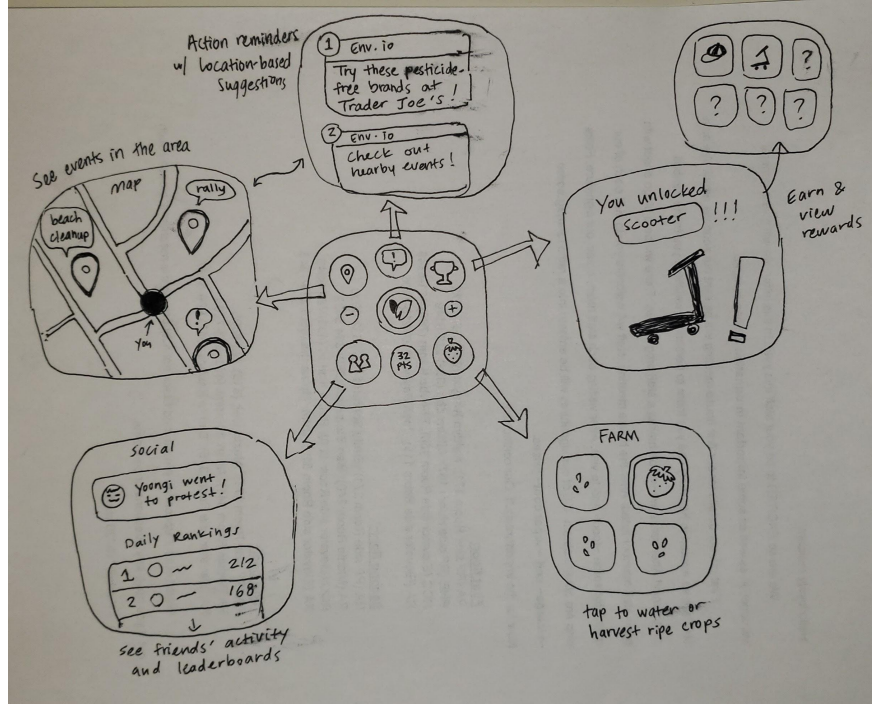 Action reminders
w/ location-based
suggestions
1 Env.io
Try these pesticide-
free brands at
Trader Joe's!
2 Env.io
Check out
nearby events!
? 
? ? ?
See events in the area
map
rally
beach
cleanup
!
You
You unlocked
scooter !!!
Earn &
view
rewards
!
- +
32
pts
Social
Yoongi went
to protest!
Daily Rankings
1 212
2 168
see friends' activity
and leaderboards
FARM
tap to water or
harvest ripe crops